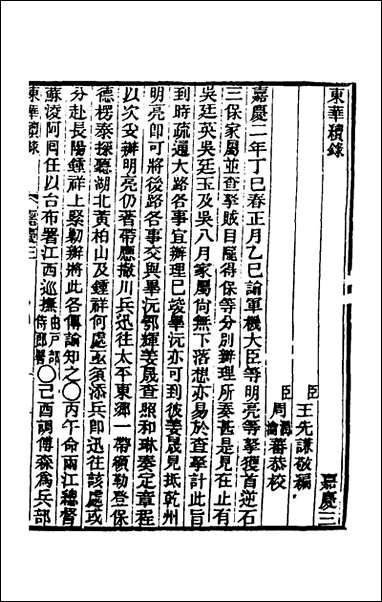 東華續錄　嘉慶三
臣王先謙敬編
臣周瀹蕃恭校
嘉慶二年丁巳春正月乙巳諭軍機大臣等明亮等拏獲首逆石
三保家屬並查拏賊目隴得保等分別辦理所奏甚是見在止有
吳廷英吳廷玉及吳八月家屬尙無下落想亦易於查拏計此旨
到時疏通大路各事宜辦理已竣畢沅亦可到彼姜晟見抵乾州
明亮卽可將後路各事交與畢沅鄂輝姜晟查照和琳奏定章程
以次妥辦明亮仍著帶應撤川兵迅往太平東鄕一帶領勒登保
德楞泰探聽湖北黃柏山及鍾祥何處亟須添兵卽迅往該處或
分赴長陽鍾祥上緊勦辦將此各傳諭知之〇丙午命兩江總督
蘇淩阿囘任以台布署江西巡撫由戶部侍郎署〇己酉調傅森爲兵部
東華續錄　嘉慶三